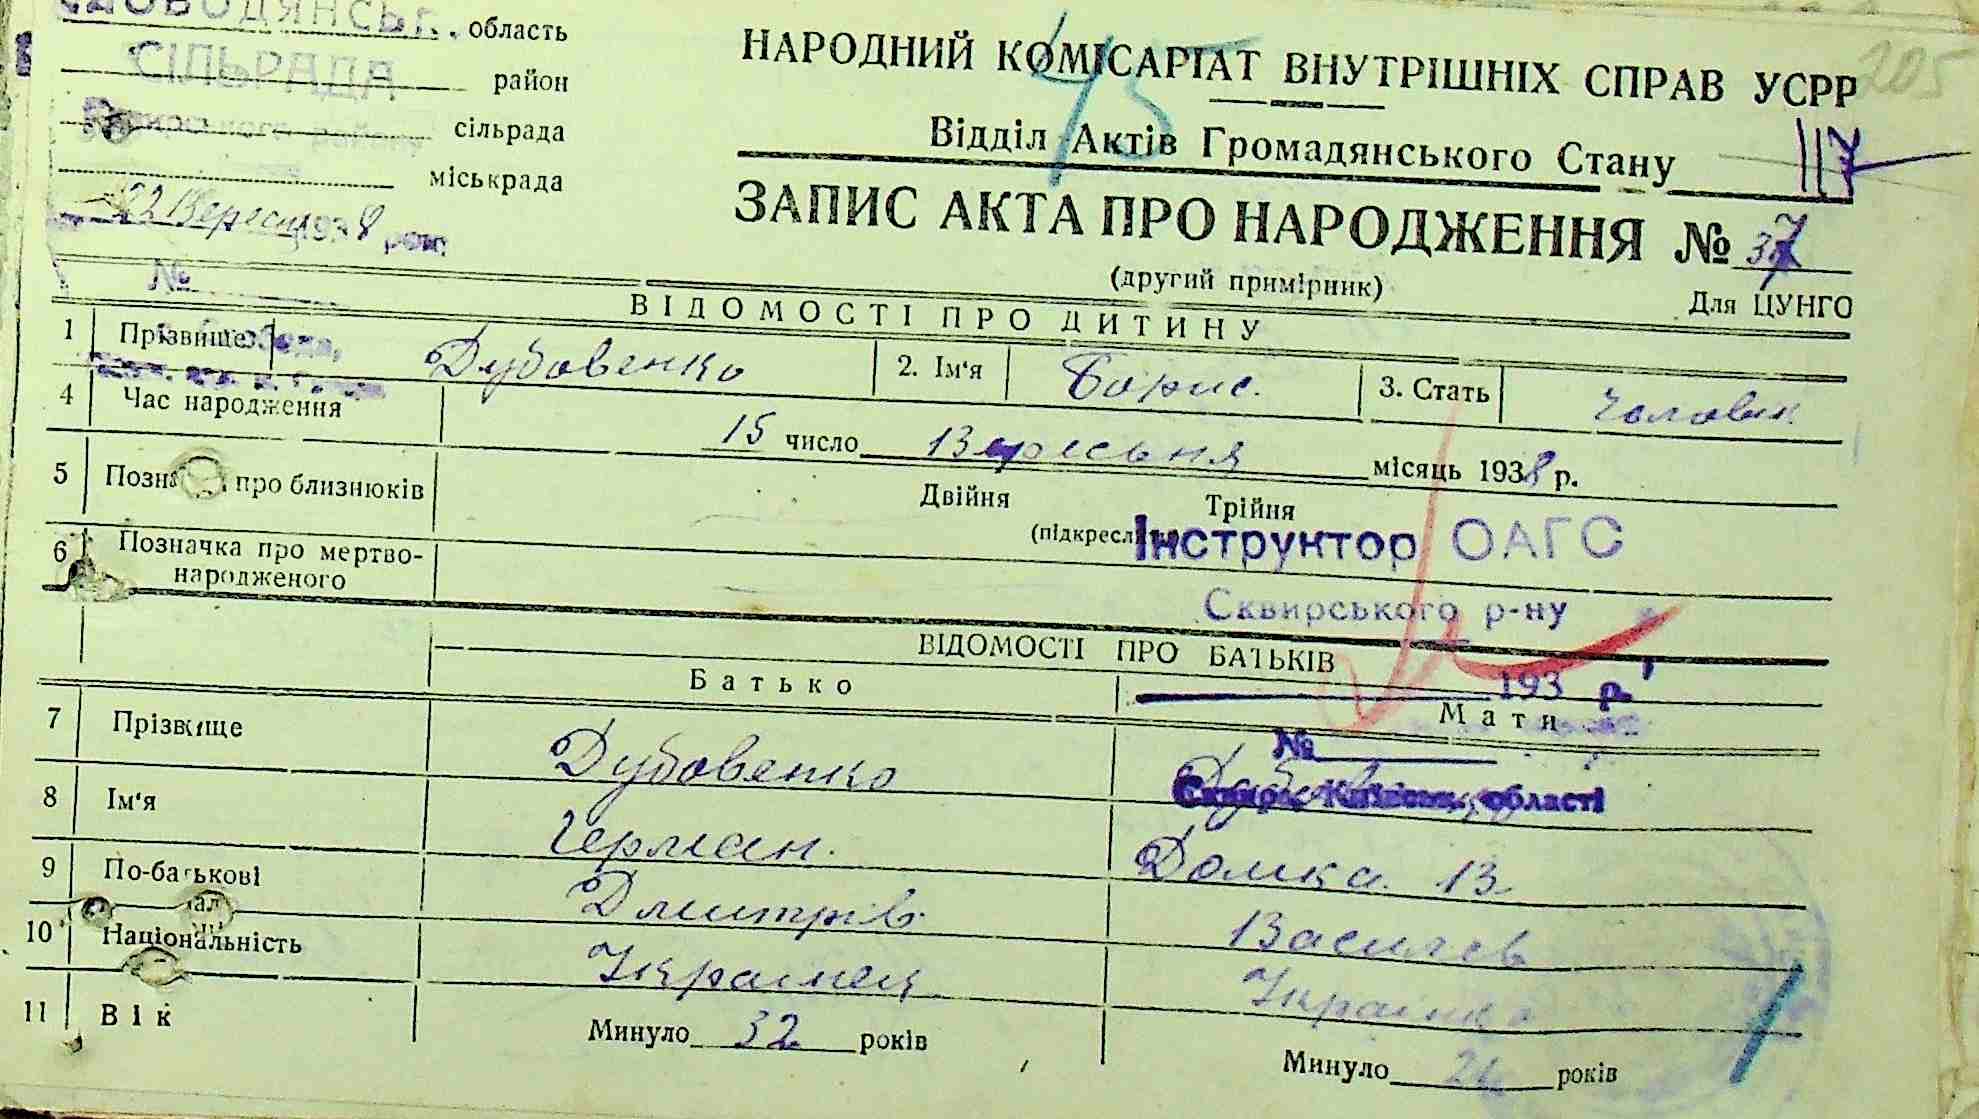 область
СІЛЬРАДА
район
сільрада
міськрада
22 Вересн 1938 рок.
№
НАРОДНИЙ КОМІСАРІАТ ВНУТРІШНІХ СПРАВ УСРР
205
45
Відділ Актів Громадянського Стану
117
ЗАПИС АКТА ПРО НАРОДЖЕННЯ № 37
(другий примірник)
Для ЦУНГО
ВІДОМОСТІ ПРО ДИТИНУ
1 Прізвище Дубовенко 2. Ім'я Борис. 3. Стать Чоловік
4 Час народження 15 число Вересьня місяць 1938 р.
5 Позн про близнюків Двійня Трійня
(підкресл
Інструктор ОАГС
6 Позначка про мертво-
народженого
Сквирського р-ну
ВІДОМОСТІ ПРО БАТЬКІВ
193 р.
Батько Мати
№
7 Прізвище Дубовенко
Сквира Київськ. області
8 Ім'я Герман. Домка. В.
9 По-батькові Дмитрів Василев
10 Національність Українец Українка
11 Вік Минуло 32 років Минуло років